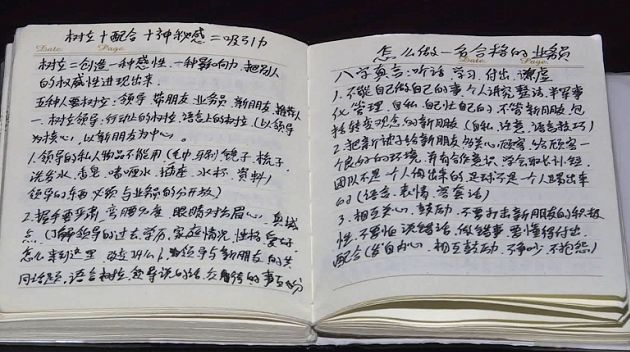 树立＋配合＋神秘感＝吸引力
Date Page
树立＝创造一种感性，一种影响力，把别人
的权威性进现出来.
五种人要树立：领导，带朋友，业务员，新朋友，推荐人
一．树立领导：行动上的树立，语言上的树立（以领导
为核心，以新朋友为中心）。
1.领导的私人物品不能用（毛巾，牙刷，镜子，梳子，
洗发水，香皂，啫喱水，插座，水杯，资料）
领导的东西必须与业务员的分开放）
2.握手要严肃，弯腰 度，眼睛对法眉心，真诚
点（了解领导的过去，学历，家庭情况，性格，爱好
怎么来到这里，改变以什么）与领导与新朋友的共
同话题，语言树立，领导说的话，交待的事
怎么做一名合格的业务员
Date Page
八字真言：听话，学习，付出，谦虚
1.不能自己做自己的事，个人讲究整洁，半军事
化管理，自私，自己忙自己的，不管新朋友，包
括转变观念的新朋友（自私，注意，语言技巧）
2.把新被子给新朋友，关心顾客，给顾客一
个良好的环境，并有合作意识，学会取长补短
团队不是一个人闯出来的，是对不是一个人踢出来
的（语言，表情，善套话）
3.相互关心，鼓励，不要打击新朋友的积极
性，不要怕说错话，做错事，要懂得付出，
配合（发自内心，相互鼓励，不争吵，不抱怨）